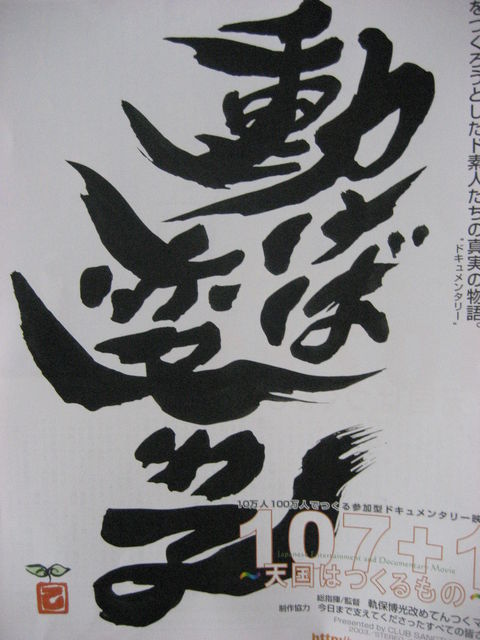 をつくろうとしたド素人たちの真実の物語。
“ドキュメンタリー”
動けば
変わる
10万人100万人でつくる参加型ドキュメンタリー映
107+1
Japanese Entertainment and Documentary Movie
〜天国はつくるもの〜
総指揮/監督 軌保博光改めてんつくマ
制作協力 今日まで支えてくださったすべての皆さ
Presented by CLUB
2003.
http://